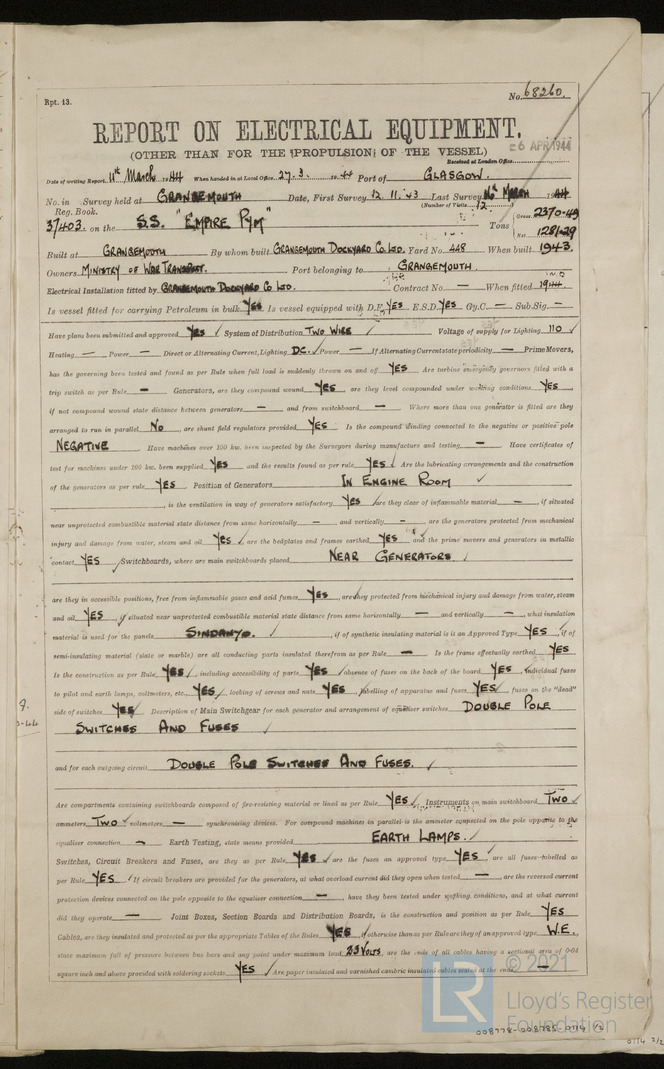 Rpt. 13.
No. 68260.
REPORT ON ELECTRICAL EQUIPMENT.
(OTHER THAN FOR THE PROPULSION OF THE VESSEL)
26 APR 1944
Received at London Office
Date of writing Report 11th March 1944 When handed in at Local Office 27.3.1944 Port of GLASGOW.
No. in Survey held at GRANGEMOUTH Date, First Survey 12.11.43 Last Survey 16th MARCH 1944
Reg. Book. (Number of Visits 12)
37403. on the S.S. "EMPIRE PYM" Tons { Gross 2370.49
Net 1281.29
Built at GRANGEMOUTH By whom built GRANGEMOUTH DOCKYARD CO. LTD. Yard No. 448 When built 1943.
Owners MINISTRY OF WAR TRANSPORT. Port belonging to GRANGEMOUTH.
Electrical Installation fitted by GRANGEMOUTH DOCKYARD CO LTD. Contract No. — When fitted 1944.
Is vessel fitted for carrying Petroleum in bulk YES Is vessel equipped with D.F. YES E.S.D. YES Gy.C. — Sub.Sig. —
Have plans been submitted and approved YES ✓ System of Distribution TWO WIRE ✓ Voltage of supply for Lighting 110 ✓
Heating — Power — Direct or Alternating Current, Lighting D.C. ✓ Power — If Alternating Current state periodicity — Prime Movers,
has the governing been tested and found as per Rule when full load is suddenly thrown on and off YES Are turbine emergency governors fitted with a
trip switch as per Rule — Generators, are they compound wound YES ✓ are they level compounded under working conditions YES ✓
if not compound wound state distance between generators — and from switchboard — Where more than one generator is fitted are they
arranged to run in parallel NO, are shunt field regulators provided YES ✓ Is the compound winding connected to the negative or positive pole
NEGATIVE Have machines over 100 kw. been inspected by the Surveyors during manufacture and testing — Have certificates of
test for machines under 100 kw. been supplied YES and the results found as per rule YES ✓ Are the lubricating arrangements and the construction
of the generators as per rule YES Position of Generators IN ENGINE ROOM ✓
, is the ventilation in way of generators satisfactory, YES ✓ are they clear of inflammable material —, if situated
near unprotected combustible material state distance from same horizontally — and vertically —, are the generators protected from mechanical
injury and damage from water, steam and oil YES ✓ are the bedplates and frames earthed YES ✓ and the prime movers and generators in metallic
contact YES ✓ Switchboards, where are main switchboards placed NEAR GENERATORS ✓
are they in accessible positions, free from inflammable gases and acid fumes YES ✓, are they protected from mechanical injury and damage from water, steam
and oil YES ✓ if situated near unprotected combustible material state distance from same horizontally — and vertically —, what insulation
material is used for the panels SINDANYO. ✓, if of synthetic insulating material is it an Approved Type YES ✓, if of
semi-insulating material (slate or marble) are all conducting parts insulated therefrom as per Rule — Is the frame effectually earthed YES
Is the construction as per Rule, YES ✓, including accessibility of parts YES ✓ absence of fuses on the back of the board YES individual fuses
to pilot and earth lamps, voltmeters, etc., YES ✓, locking of screws and nuts YES ✓, labelling of apparatus and fuses YES ✓ fuses on the "dead"
side of switches YES ✓ Description of Main Switchgear for each generator and arrangement of equaliser switches DOUBLE POLE
SWITCHES AND FUSES ✓
and for each outgoing circuit DOUBLE POLE SWITCHES AND FUSES. ✓
Are compartments containing switchboards composed of fire-resisting material or lined as per Rule YES ✓ Instruments on main switchboard TWO ✓
ammeters TWO ✓ voltmeters — synchronising devices. For compound machines in parallel is the ammeter connected on the pole opposite to the
equaliser connection — Earth Testing, state means provided EARTH LAMPS. ✓
Switches, Circuit Breakers and Fuses, are they as per Rule YES ✓ are the fuses an approved type YES ✓ are all fuses labelled as
per Rule YES ✓ If circuit breakers are provided for the generators, at what overload current did they open when tested —, are the reversed current
protection devices connected on the pole opposite to the equaliser connection —, have they been tested under working conditions, and at what current
did they operate — Joint Boxes, Section Boards and Distribution Boards, is the construction and position as per Rule, YES
Cables, are they insulated and protected as per the appropriate Tables of the Rules YES ✓ if otherwise than as per Rule are they of an approved type W.E.
state maximum fall of pressure between bus bars and any point under maximum load 2.3 VOLTS, are the ends of all cables having a sectional area of 0.04
square inch and above provided with soldering sockets YES ✓ Are paper insulated and varnished cambric insulated cables sealed at the ends —
© 2021
LR
Lloyd's Register
Foundation
008778-008785-0114 1/2
0114 2/2